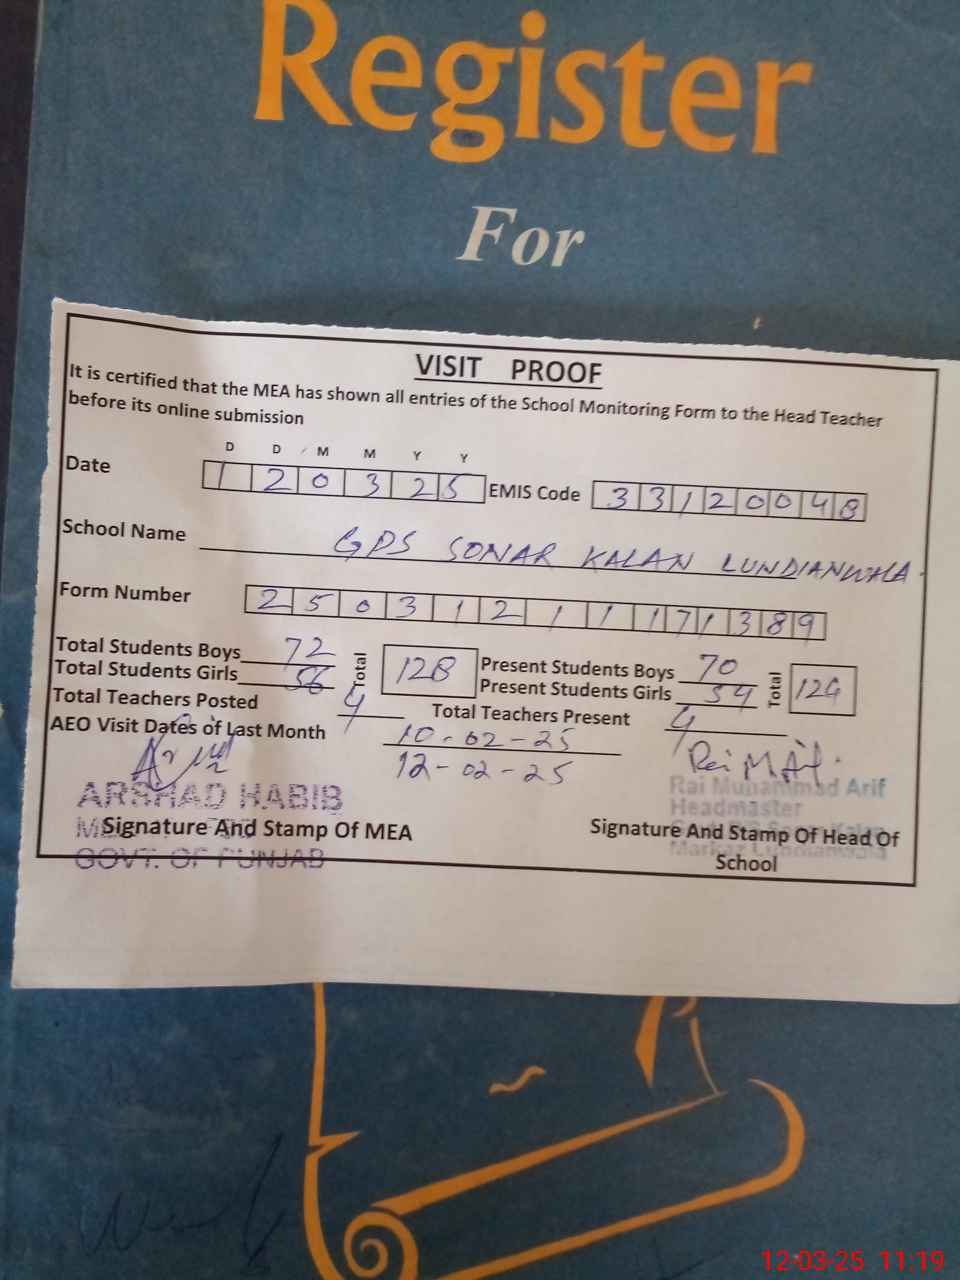 Register
For
VISIT PROOF
It is certified that the MEA has shown all entries of the School Monitoring Form to the Head Teacher
before its online submission
D D M M Y Y
Date 1 2 0 3 2 5 EMIS Code 3 3 1 2 0 0 4 8
School Name GPS SONAR KALAN LUNDIANWALA.
Form Number 2 5 0 3 1 2 1 1 1 7 1 3 8 9
Total Students Boys 72 Total 128 Present Students Boys 70 Total 124
Total Students Girls 56 Present Students Girls 54
Total Teachers Posted 4 Total Teachers Present 4
AEO Visit Dates of Last Month 10-02-25
12-02-25
ARSHAD HABIB
Signature And Stamp Of MEA
GOVT. OF PUNJAB
Rai M Arif.
Rai Muhammad Arif
Headmaster
Signature And Stamp Of Head Of
Markaz Lundianwala
School
12-03-25 11:19